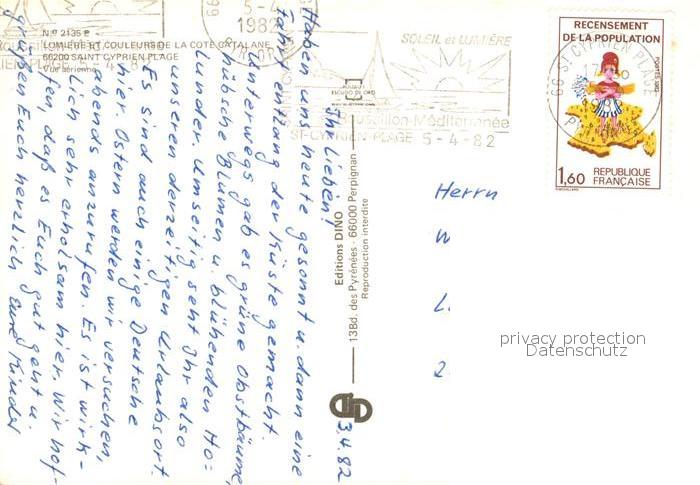 Nº 2135 E
LUMIERE ET COULEURS DE LA COTE CATALANE
66200 SAINT CYPRIEN PLAGE
Vue aérienne
5-4
1982
SOLEIL et LUMIÈRE
Roussillon-Méditerranée
ST-CYPRIEN PLAGE 5-4-82
RECENSEMENT
DE LA POPULATION
POSTES 1982
66 ST CYPRIEN PLAGE
1,60
REPUBLIQUE
FRANÇAISE
3.4.82
Ihr Lieben!
Haben uns heute gesonnt u. dann eine
Fahrt entlang der Küste gemacht.
Unterwegs gab es grüne Obstbäume,
hübsche Blumen u. blühenden Ho=
lunder. Umseitig seht Ihr also
unseren derzeitigen Urlaubsort.
Es sind auch einige Deutsche
hier. Ostern werden wir versuchen,
abends anzurufen. Es ist wirk-
lich sehr erholsam hier. Wir hof-
fen, daß es Euch gut geht u.
grüßen Euch herzlich Eure Kinder
Editions DINO
13Bd. des Pyrénées - 66000 Perpignan
Reproduction interdite
Herrn
W
L.
2
privacy protection
Datenschutz